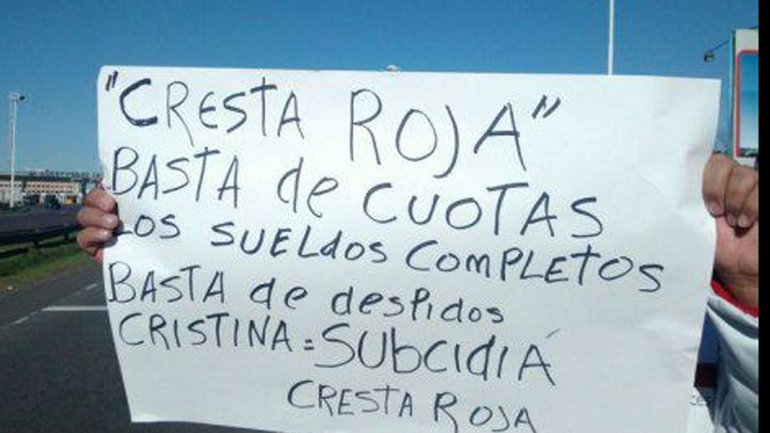 "CRESTA ROJA"
BASTA de CUOTAS
LOS SUELdOS COMPLETOS
BASTA de despidos
CRISTINA = SUBCIdIÁ
CRESTA ROJA